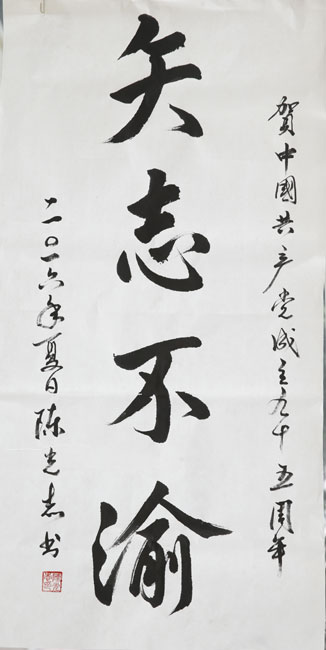 贺中國共产党成立九十五周年
矢志不渝
二〇一六年夏日陈光志书